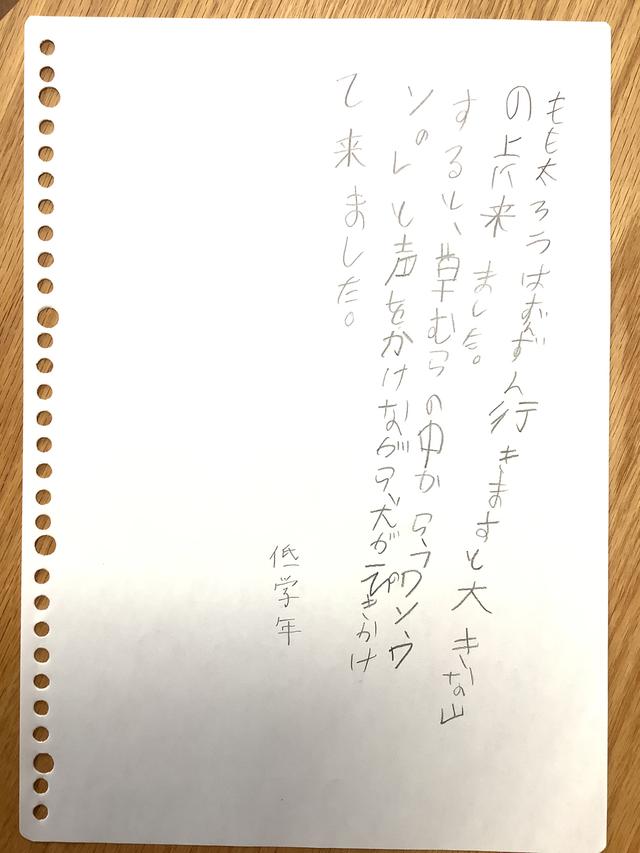 もも太ろうはずんずん行きますと大きな山
の上に来ました。
すると、草むらの中から、「ワン、ワ
ン。」と声をかけながら、犬が一ぴきかけ
て来ました。
低学年